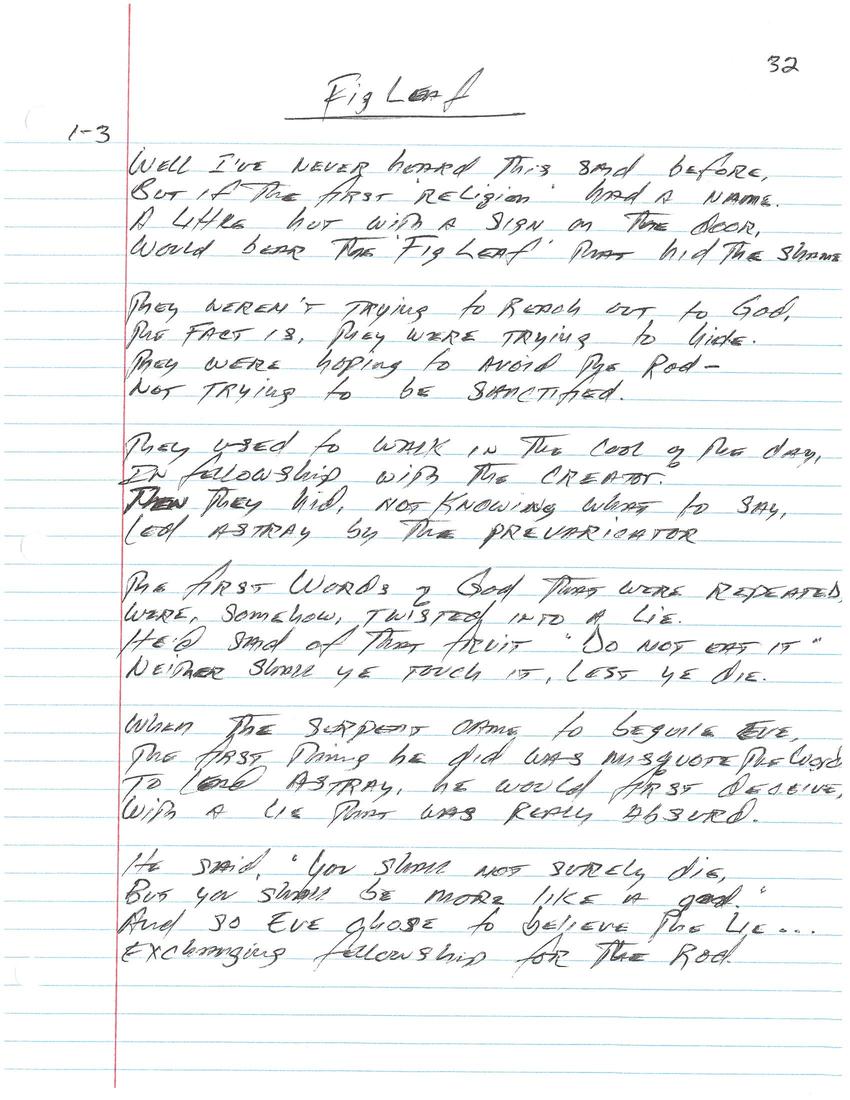 32
Fig Leaf
1-3
Well I've never heard this said before,
But if the first 'religion' had a name.
A little hut with a sign on the door,
Would bear the 'Fig Leaf' that hid the shame
They weren't trying to reach out to God,
The fact is, they were trying to hide.
They were hoping to avoid the Rod-
Not trying to be sanctified.
They used to walk in the cool of the day,
In fellowship with the Creator.
Then they hid, not knowing what to say,
Led astray by the prevaricator
The first words of God that were repeated,
Were, somehow, twisted into a lie.
He'd said of that fruit "Do not eat it"
Neither shall ye touch it, lest ye die.
When the surpent came to beguile Eve,
The first thing he did was misquote the Word
To lead astray, he would first deceive,
With a lie that was realy absurd.
He said, "You shall not surely die,
But you shall be more like a god."
And so Eve chose to believe the lie...
Exchanging fellowship for the Rod.